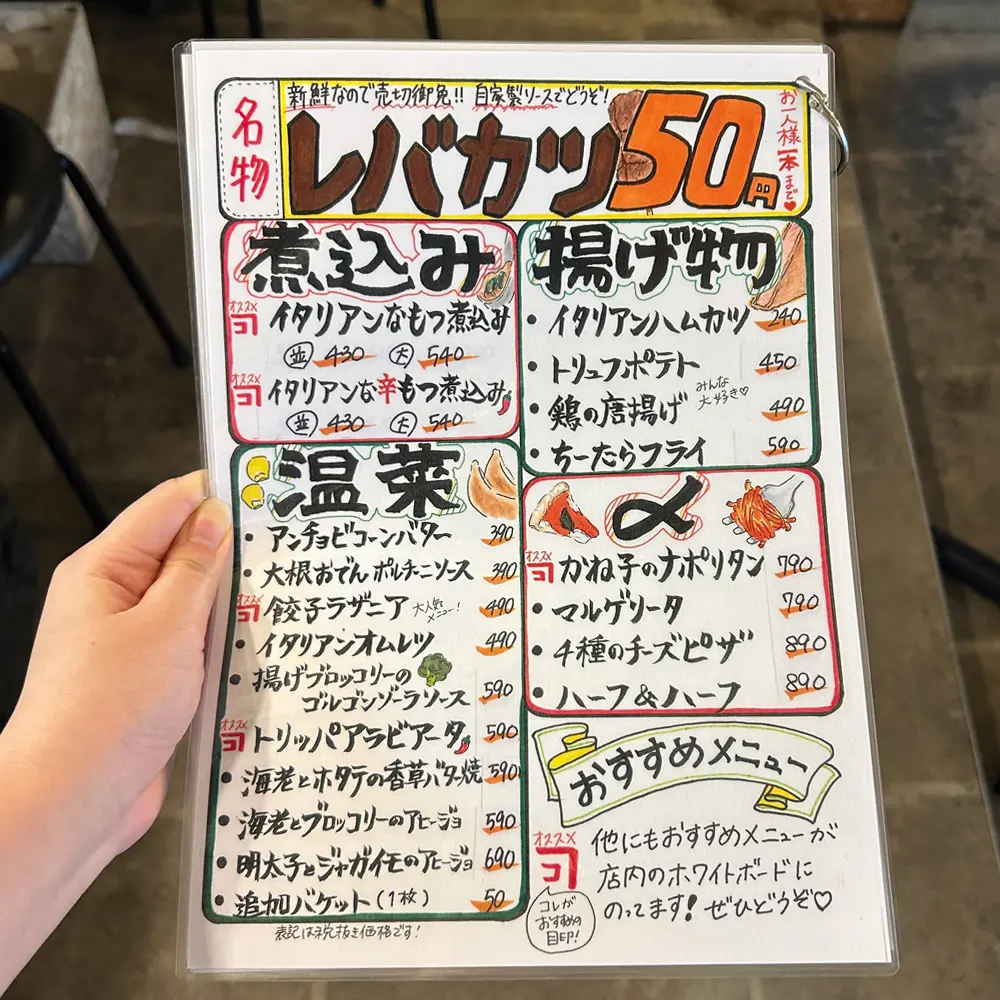 名物
新鮮なので売切御免!! 自家製ソースでどうぞ!
レバカツ 50円
お一人様一本まで♥
煮込み
オススメ コ イタリアンなもつ煮込み
並 430 大 540
オススメ コ イタリアンな辛もつ煮込み
並 430 大 540
温菜
・アンチョビコーンバター 390
・大根おでんポルチーニソース 390
オススメ コ 餃子ラザニア 大人気メニュー! 490
・イタリアンオムレツ 490
・揚げブロッコリーの
ゴルゴンゾーラソース 590
オススメ コ トリッパアラビアータ 590
・海老とホタテの香草バター焼 590
・海老とブロッコリーのアヒージョ 590
・明太子とジャガイモのアヒージョ 690
・追加バケット(1枚) 50
表記は税抜き価格です!
揚げ物
・イタリアンハムカツ 240
・トリュフポテト 450
・鶏の唐揚げ みんな大好き♡ 490
・ちーたらフライ 590
〆
オススメ コ かね子のナポリタン 790
・マルゲリータ 790
・4種のチーズピザ 890
・ハーフ&ハーフ 890
おすすめメニュー
オススメ コ
コレが
おすすめの
目印!
他にもおすすめメニューが
店内のホワイトボードに
のってます!ぜひどうぞ♡